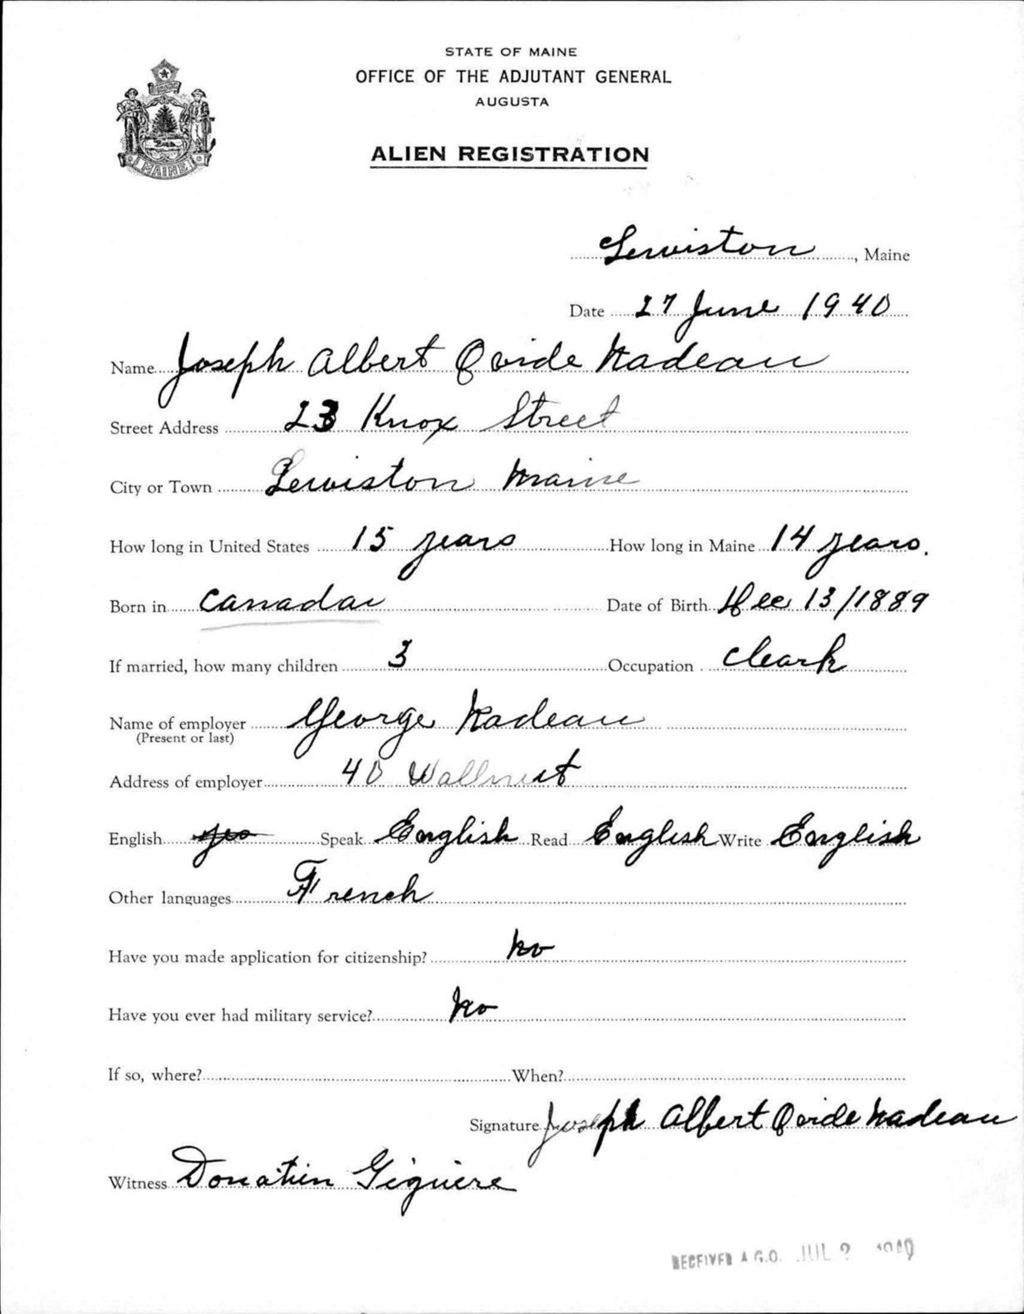 STATE OF MAINE
OFFICE OF THE ADJUTANT GENERAL
AUGUSTA
ALIEN REGISTRATION
MAINE
Lewiston, Maine
Date 27 June 1940
Name Joseph Albert Ovide Nadeau
Street Address 23 Knox Street
City or Town Lewiston Maine
How long in United States 15 years How long in Maine 14 years.
Born in Canada Date of Birth Dec 13/1889
If married, how many children 3 Occupation cleark
Name of employer George Nadeau
(Present or last)
Address of employer 40 Wallnut
English yes Speak English Read English Write English
Other languages French
Have you made application for citizenship? No
Have you ever had military service? No
If so, where? When?
Signature Joseph Albert Ovide Nadeau
Witness Donatien Giguere
RECEIVED A.G.O. JUL 2 1940